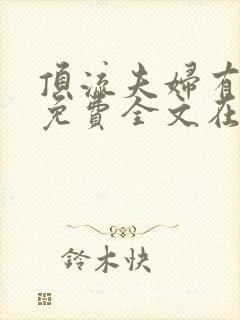 頂流夫婦有
免費全文在
鈴木快